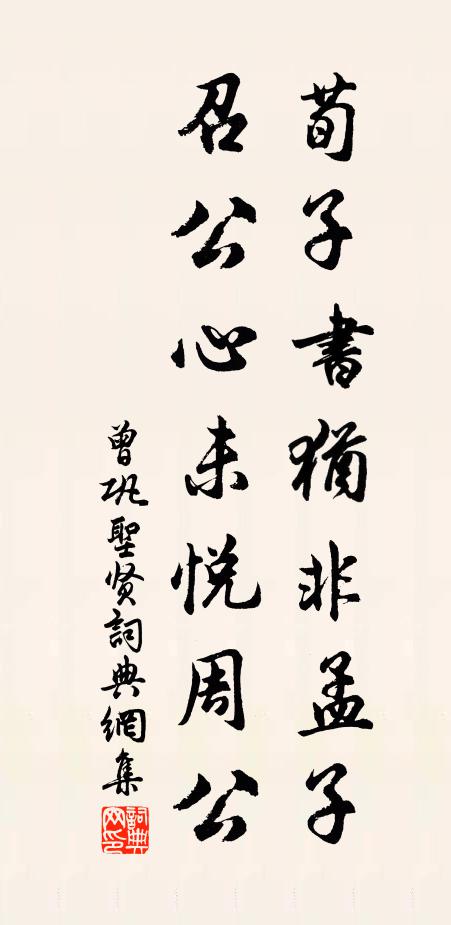 荀子書猶非孟子
召公心未悅周公
曾巩聖贤詞典網集
詞典網印